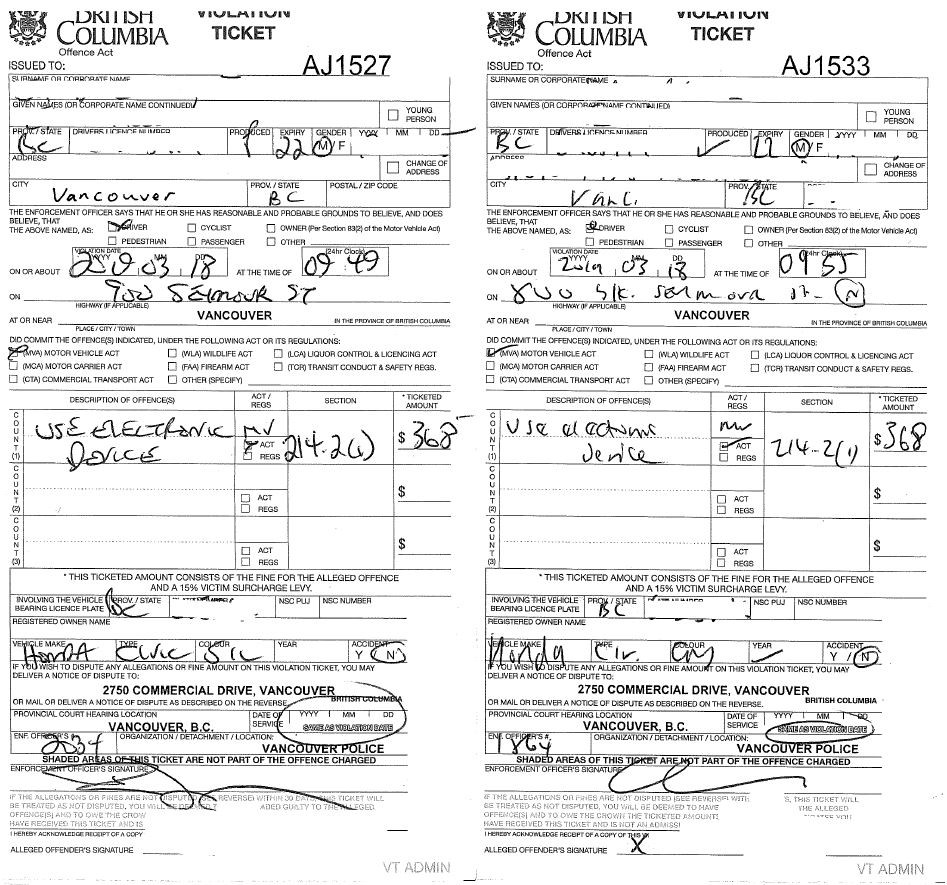 BRITISH
COLUMBIA
Offence Act
VIOLATION
TICKET
ISSUED TO:
AJ1527
SURNAME OR CORPORATE NAME
GIVEN NAMES (OR CORPORATE NAME CONTINUED)
YOUNG
PERSON
PROV. / STATE DRIVERS LICENCE NUMBER PRODUCED EXPIRY GENDER YYYY MM DD
BC 22 M / F
ADDRESS
CHANGE OF
ADDRESS
CITY PROV. / STATE POSTAL / ZIP CODE
Vancouver BC
THE ENFORCEMENT OFFICER SAYS THAT HE OR SHE HAS REASONABLE AND PROBABLE GROUNDS TO BELIEVE, AND DOES
BELIEVE, THAT
THE ABOVE NAMED, AS: DRIVER CYCLIST OWNER (Per Section 83(2) of the Motor Vehicle Act)
PEDESTRIAN PASSENGER OTHER
VIOLATION DATE
YYYY MM DD (24hr Clock)
ON OR ABOUT 2019 03 18 AT THE TIME OF 09 49
ON 900 SEYMOUR ST
HIGHWAY (IF APPLICABLE)
AT OR NEAR VANCOUVER IN THE PROVINCE OF BRITISH COLUMBIA
PLACE / CITY / TOWN
DID COMMIT THE OFFENCE(S) INDICATED, UNDER THE FOLLOWING ACT OR ITS REGULATIONS:
(MVA) MOTOR VEHICLE ACT (WLA) WILDLIFE ACT (LCA) LIQUOR CONTROL & LICENCING ACT
(MCA) MOTOR CARRIER ACT (FAA) FIREARM ACT (TCR) TRANSIT CONDUCT & SAFETY REGS.
(CTA) COMMERCIAL TRANSPORT ACT OTHER (SPECIFY)
DESCRIPTION OF OFFENCE(S) ACT / REGS SECTION * TICKETED AMOUNT
COUNT (1) USE ELECTRONIC DEVICE MV ACT REGS 214.2(1) $ 368
COUNT (2) ACT REGS $
COUNT (3) ACT REGS $
* THIS TICKETED AMOUNT CONSISTS OF THE FINE FOR THE ALLEGED OFFENCE
AND A 15% VICTIM SURCHARGE LEVY.
INVOLVING THE VEHICLE
BEARING LICENCE PLATE
PROV. / STATE NSC PUJ NSC NUMBER
BC
REGISTERED OWNER NAME
VEHICLE MAKE TYPE COLOUR YEAR ACCIDENT
HONDA CIVIC SIL Y / N
IF YOU WISH TO DISPUTE ANY ALLEGATIONS OR FINE AMOUNT ON THIS VIOLATION TICKET, YOU MAY
DELIVER A NOTICE OF DISPUTE TO:
2750 COMMERCIAL DRIVE, VANCOUVER
BRITISH COLUMBIA
OR MAIL OR DELIVER A NOTICE OF DISPUTE AS DESCRIBED ON THE REVERSE.
PROVINCIAL COURT HEARING LOCATION DATE OF SERVICE YYYY MM DD
VANCOUVER, B.C. SAME AS VIOLATION DATE
ENF. OFFICER'S #. ORGANIZATION / DETACHMENT / LOCATION:
VANCOUVER POLICE
SHADED AREAS OF THIS TICKET ARE NOT PART OF THE OFFENCE CHARGED
ENFORCEMENT OFFICER'S SIGNATURE
IF THE ALLEGATIONS OR FINES ARE NOT DISPUTED (SEE REVERSE) WITHIN 30 DAYS, THIS TICKET WILL
BE TREATED AS NOT DISPUTED, YOU WILL BE DEEMED
OFFENCE(S) AND TO OWE THE CROW
HAVE RECEIVED THIS TICKET AND IS
I HEREBY ACKNOWLEDGE RECEIPT OF A COPY
ALLEGED OFFENDER'S SIGNATURE
VT ADMIN
BRITISH
COLUMBIA
Offence Act
VIOLATION
TICKET
ISSUED TO:
AJ1533
SURNAME OR CORPORATE NAME
GIVEN NAMES (OR CORPORATE NAME CONTINUED)
YOUNG
PERSON
PROV. / STATE DRIVERS LICENCE NUMBER PRODUCED EXPIRY GENDER YYYY MM DD
BC M / F
ADDRESS
CHANGE OF
ADDRESS
CITY PROV. / STATE
BC
THE ENFORCEMENT OFFICER SAYS THAT HE OR SHE HAS REASONABLE AND PROBABLE GROUNDS TO BELIEVE, AND DOES
BELIEVE, THAT
THE ABOVE NAMED, AS: DRIVER CYCLIST OWNER (Per Section 83(2) of the Motor Vehicle Act)
PEDESTRIAN PASSENGER OTHER
VIOLATION DATE
YYYY MM DD (24hr Clock)
ON OR ABOUT 2019 03 18 AT THE TIME OF 09 55
ON 800 blk. Seymour st. N
HIGHWAY (IF APPLICABLE)
AT OR NEAR VANCOUVER IN THE PROVINCE OF BRITISH COLUMBIA
PLACE / CITY / TOWN
DID COMMIT THE OFFENCE(S) INDICATED, UNDER THE FOLLOWING ACT OR ITS REGULATIONS:
(MVA) MOTOR VEHICLE ACT (WLA) WILDLIFE ACT (LCA) LIQUOR CONTROL & LICENCING ACT
(MCA) MOTOR CARRIER ACT (FAA) FIREARM ACT (TCR) TRANSIT CONDUCT & SAFETY REGS.
(CTA) COMMERCIAL TRANSPORT ACT OTHER (SPECIFY)
DESCRIPTION OF OFFENCE(S) ACT / REGS SECTION * TICKETED AMOUNT
COUNT (1) Use electronic device MV ACT REGS 214-2(1) $ 368
COUNT (2) ACT REGS $
COUNT (3) ACT REGS $
* THIS TICKETED AMOUNT CONSISTS OF THE FINE FOR THE ALLEGED OFFENCE
AND A 15% VICTIM SURCHARGE LEVY.
INVOLVING THE VEHICLE
BEARING LICENCE PLATE
PROV. / STATE NSC PUJ NSC NUMBER
BC
REGISTERED OWNER NAME
VEHICLE MAKE TYPE COLOUR YEAR ACCIDENT
Honda Civ. Y / N
IF YOU WISH TO DISPUTE ANY ALLEGATIONS OR FINE AMOUNT ON THIS VIOLATION TICKET, YOU MAY
DELIVER A NOTICE OF DISPUTE TO:
2750 COMMERCIAL DRIVE, VANCOUVER
BRITISH COLUMBIA
OR MAIL OR DELIVER A NOTICE OF DISPUTE AS DESCRIBED ON THE REVERSE.
PROVINCIAL COURT HEARING LOCATION DATE OF SERVICE YYYY MM DD
VANCOUVER, B.C. SAME AS VIOLATION DATE
ENF. OFFICER'S #. ORGANIZATION / DETACHMENT / LOCATION:
1864 VANCOUVER POLICE
SHADED AREAS OF THIS TICKET ARE NOT PART OF THE OFFENCE CHARGED
ENFORCEMENT OFFICER'S SIGNATURE
IF THE ALLEGATIONS OR FINES ARE NOT DISPUTED (SEE REVERSE) WITH S, THIS TICKET WILL
BE TREATED AS NOT DISPUTED, YOU WILL BE DEEMED TO HAVE THE ALLEGED
OFFENCE(S) AND TO OWE THE CROWN THE TICKETED AMOUNT
HAVE RECEIVED THIS TICKET AND IS NOT AN ADMISSI
I HEREBY ACKNOWLEDGE RECEIPT OF A COPY OF THIS
ALLEGED OFFENDER'S SIGNATURE X
VT ADMIN